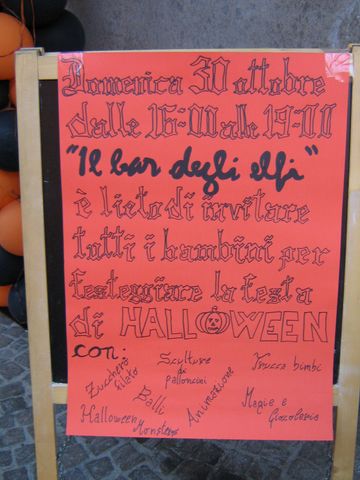 Domenica 30 ottobre
dalle 16-00 alle 19-00
"Il bar degli elfi"
è lieto di invitare
tutti i bambini per
festeggiare la festa
di HALLOWEEN
con:
Zucchero filato
Sculture di palloncini
Trucca bimbi
Halloween Monsters
Balli
Animazione
Magie e Giocoleria